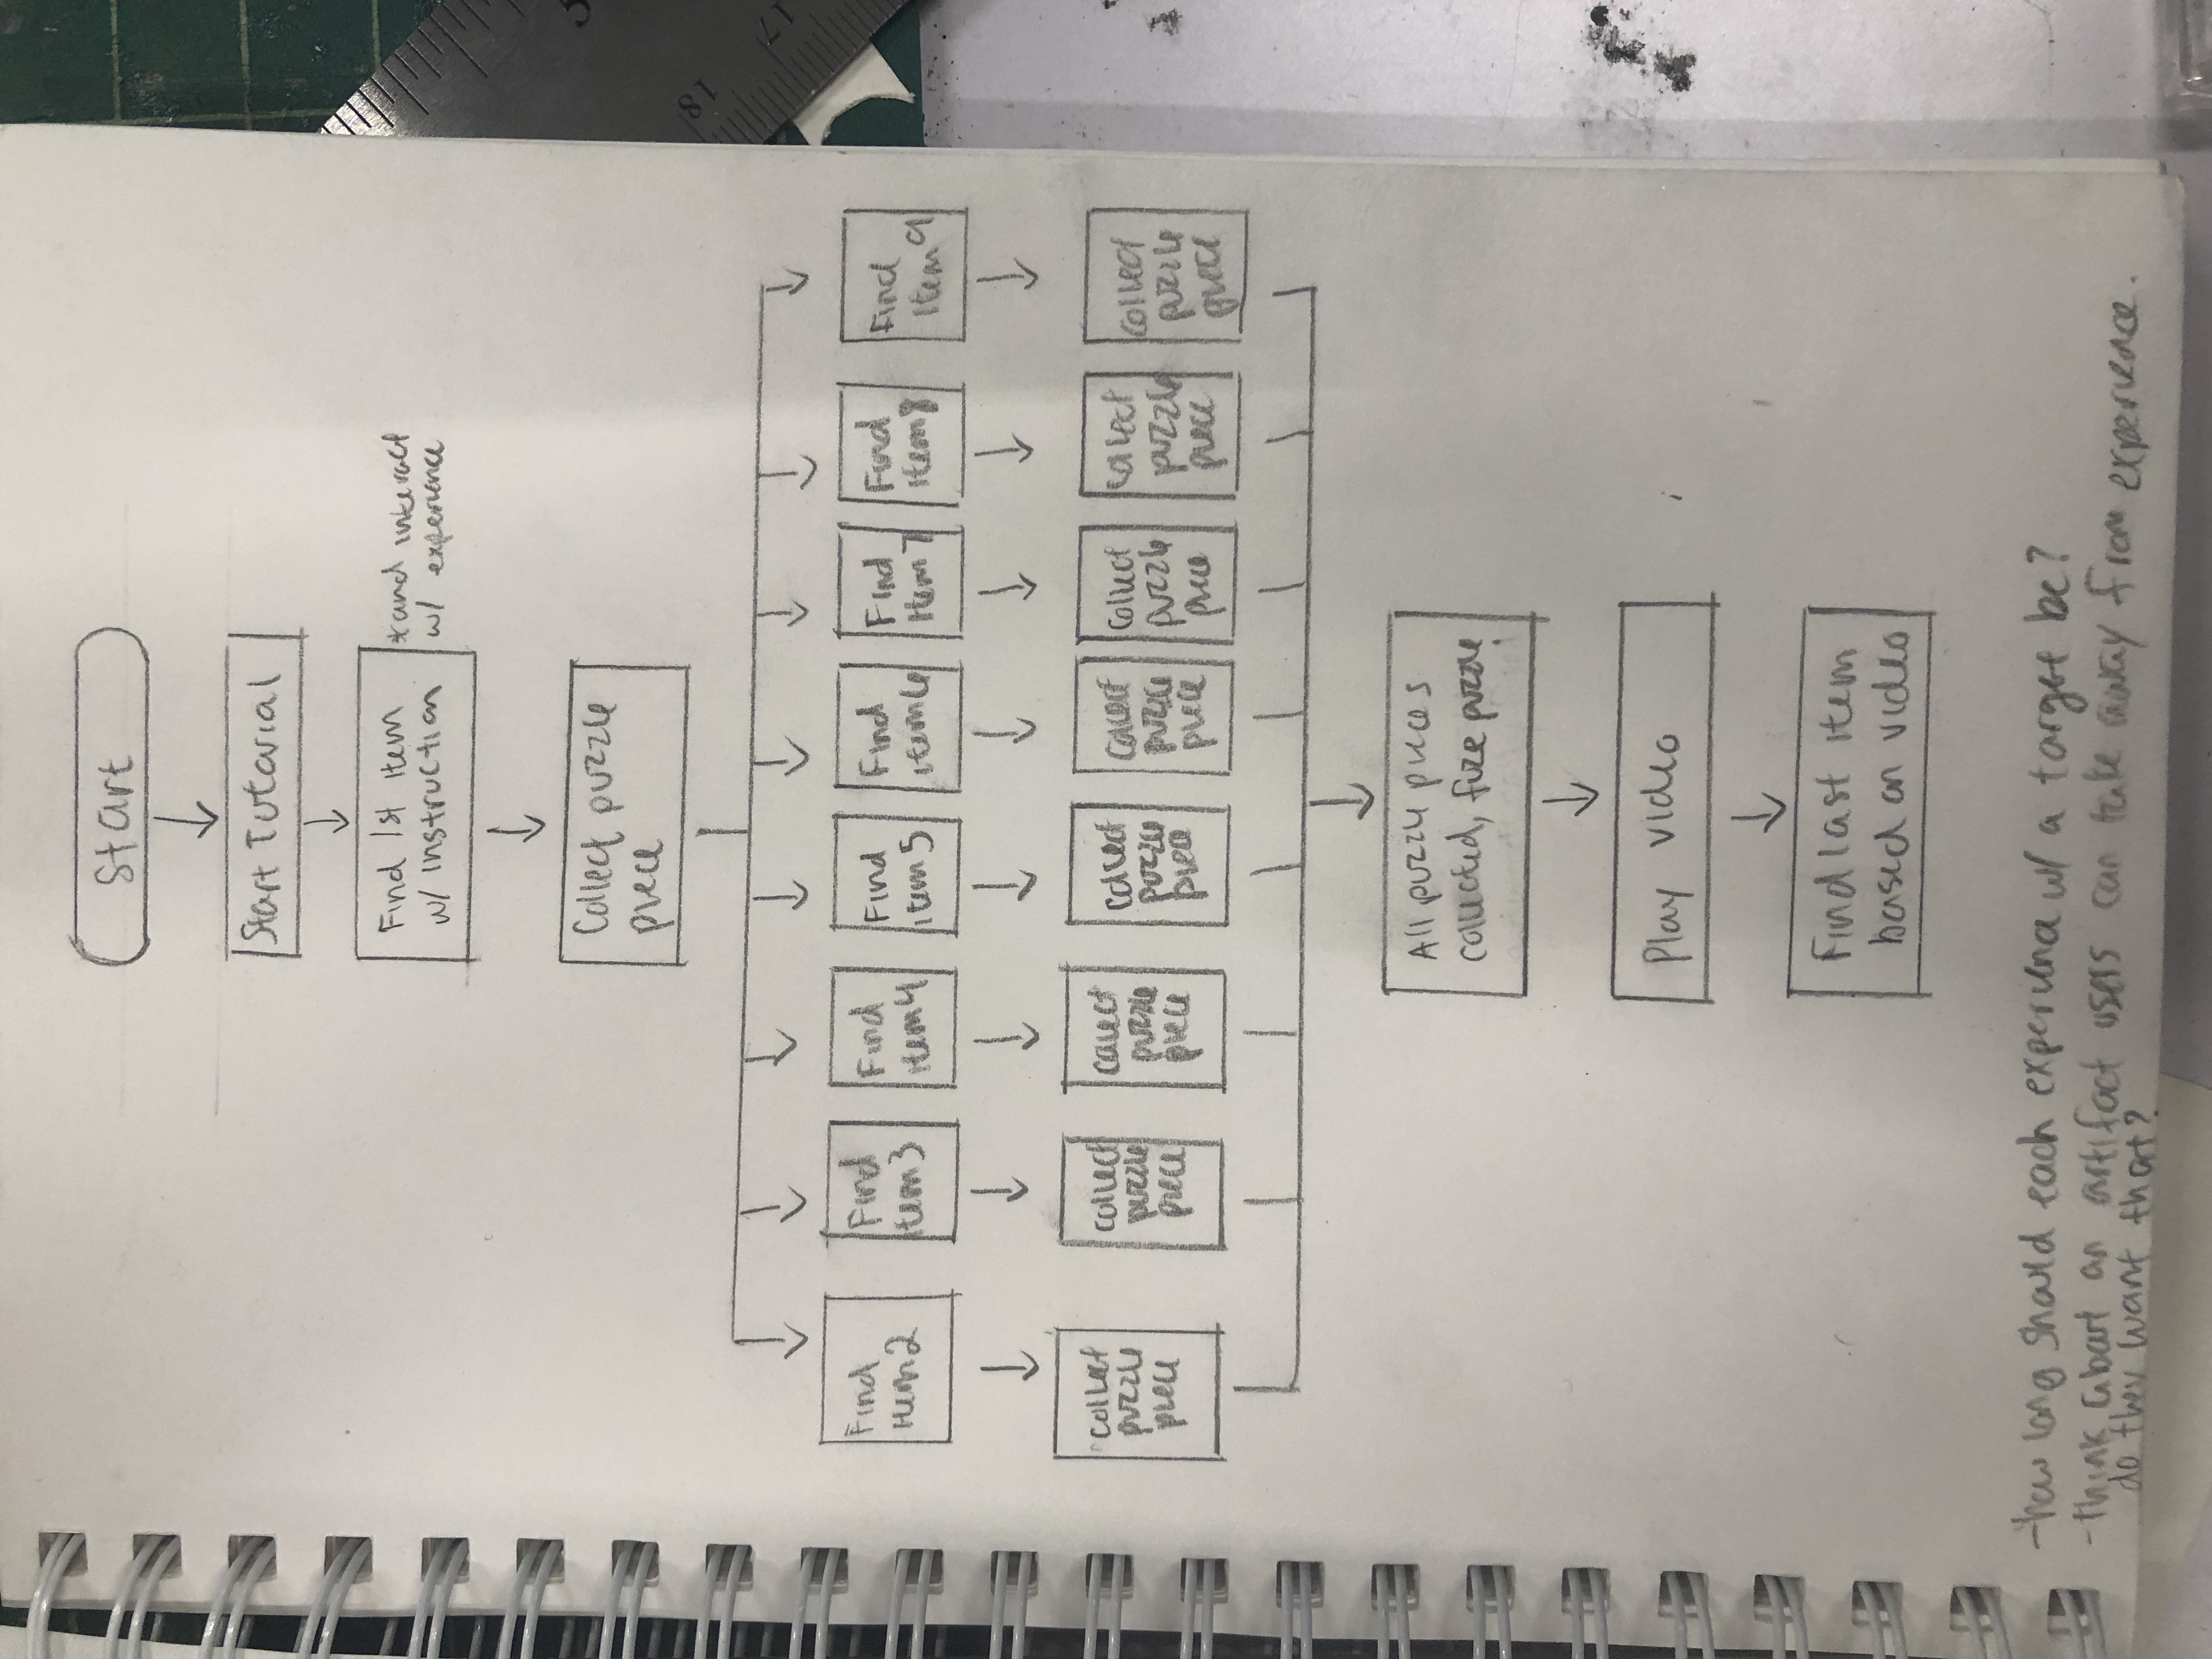 Start
Start Tutorial
Find 1st item
w/ instruction
*and interact
w/ experience
Collect puzzle
piece
Find
item 2
Find
item 3
Find
item 4
Find
item 5
Find
item 6
Find
item 7
Find
item 8
Find
item 9
collect
puzzle
piece
collect
puzzle
piece
collect
puzzle
piece
collect
puzzle
piece
collect
puzzle
piece
collect
puzzle
piece
collect
puzzle
piece
collect
puzzle
piece
All puzzle pieces
collected, fuze puzzle
Play video
Find last item
based on video
-how long should each experience w/ a target be?
-think about an artifact users can take away from experience.
do they want that?
5
18
17